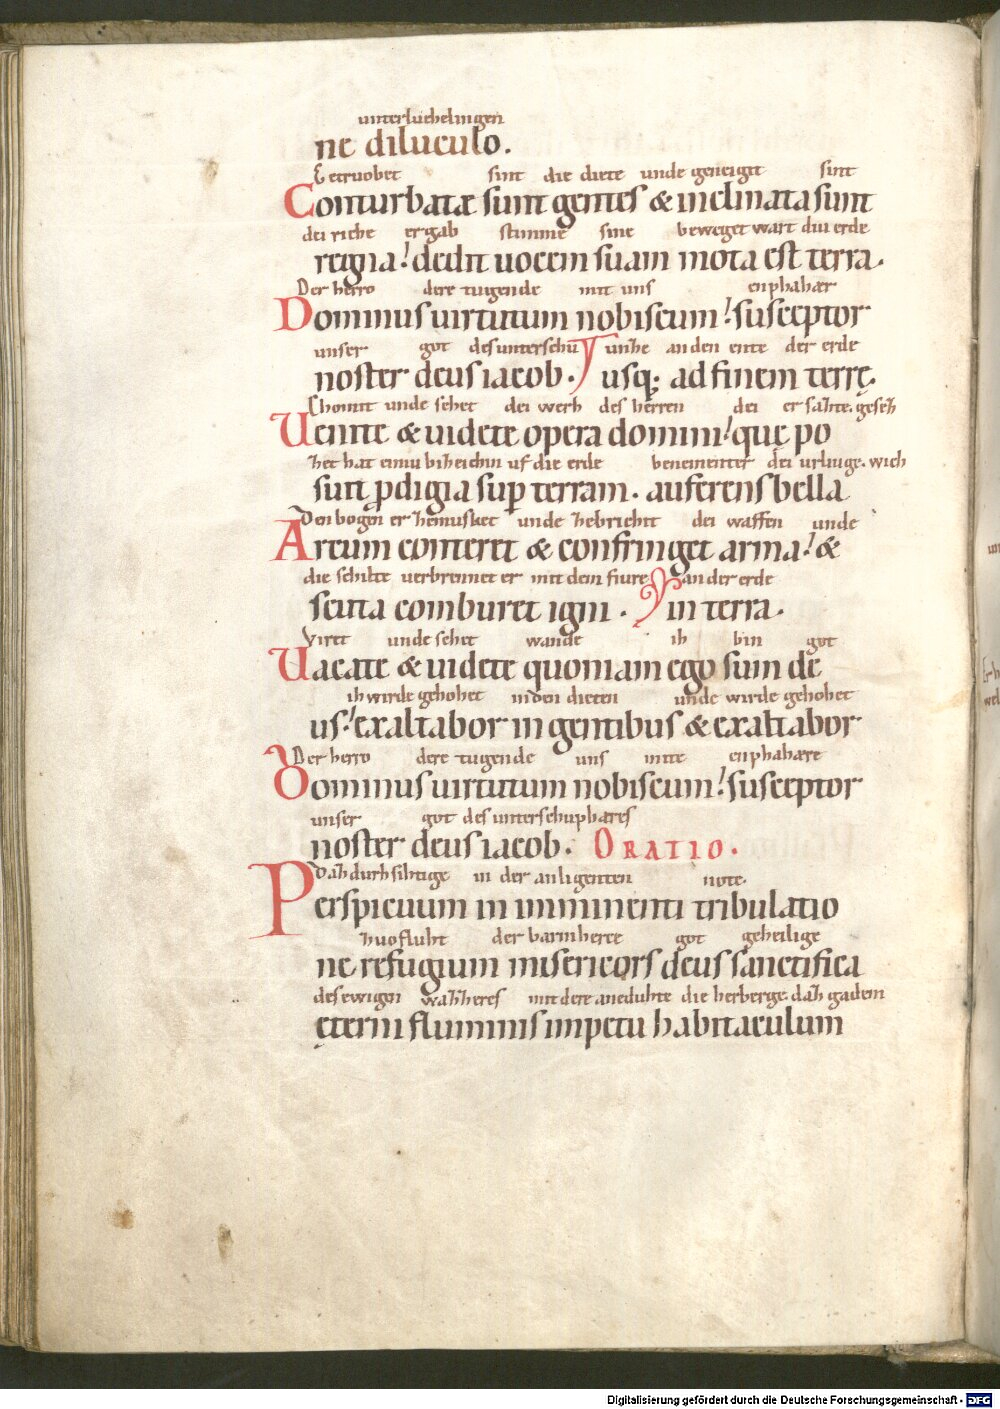 unterluchelingen
ne diluculo.
Getruobet sint die diete unde geneiget sint
Conturbatæ sunt gentes & inclinata sunt
dei riche er gab stimme sine beweget wart diu erde
regna! dedit uocem suam mota est terra.
Der herro dere tugende mit uns enphahær
Dominus uirtutum nobiscum! susceptor
unser got des unterschu unhe an den ente der erde
noster deus iacob. usq; ad finem terrę.
Chomt unde sehet dei werh des herren dei er sazte. gesez
Uenite & uidete opera domini! quę po
zet hat einiu biheichin uf die erde benementer dei urliuge. wich
sunt pdigia sup terram. auferens bella
Den bogen er zemusket unde zebrichit dei waffen unde
Arcum conteret & confringet arma! &
die schilte verbrennet er mit dem fiure an der erde
scuta comburet igni. in terra.
Viret unde sehet wande ih bin got
Uacate & uidete quoniam ego sum de
ih wirde gehohet in den dieten unde wirde gehohet
us! exaltabor in gentibus & exaltabor
Der herro dere tugende uns mite enphahare
Dominus uirtutum nobiscum! susceptor
unser got des unterschuphares
noster deus iacob. ORATIO.
Daz durhsihtige in der anligenten note.
Perspicuum in imminenti tribulatio
zuofluht der barmherce got geheilige
ne refugium misericors deus sanctifica
des ewigen wazzeres mit dere aneduhte die herberge. daz gadem
ęterni fluminis impetu habitaculum
Digitalisierung gefördert durch die Deutsche Forschungsgemeinschaft - DFG